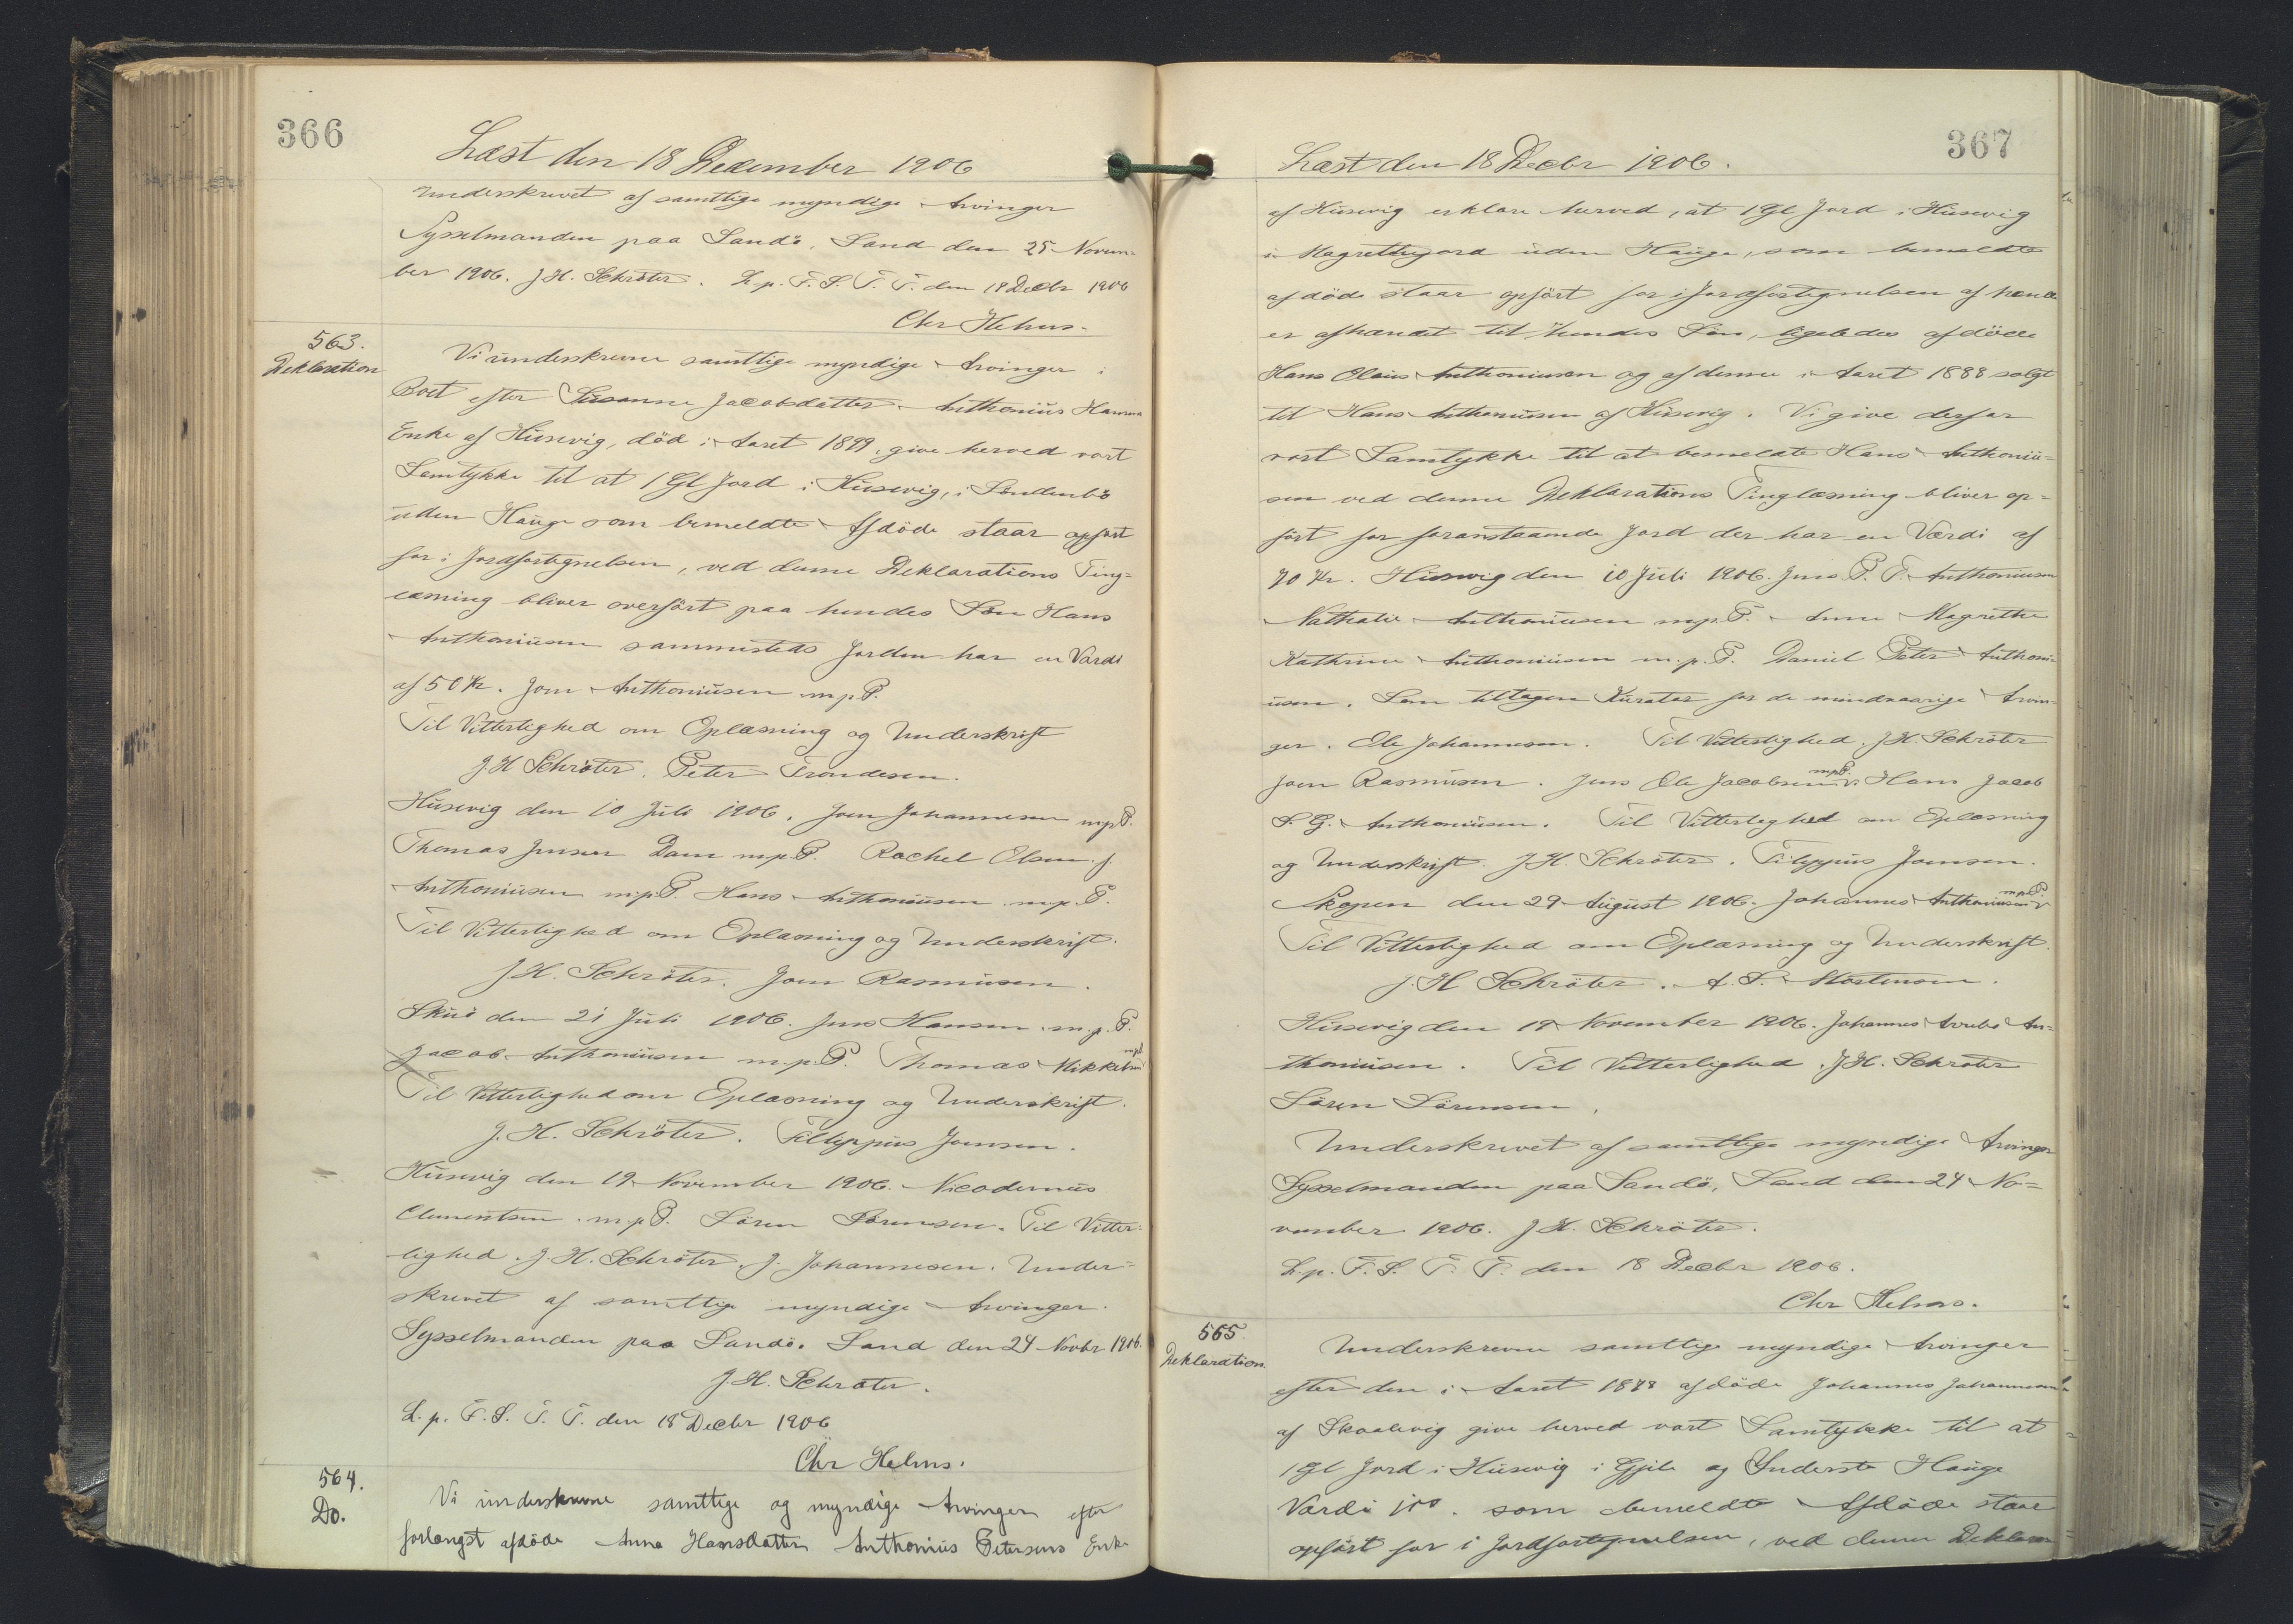 366
Læst den 18 December 1906
Underskrevet af samttlige myndige Arvinger
Sysselmanden paa Sandö, Sand den 25 Novem-
ber 1906. J. H. Schröter. L. p. F. S. T. T. den 18 Decbr 1906
Chr Helms.
563.
Deklaration
Vi underskrevne samttlige myndige Arvinger i
Boet efter Susanne Jacobsdatter Anthonius Hanses
Enke af Husevig, död i Aaret 1899, give herved vort
Samtykke til at 1 Gl Jord i Husevig, i Söndenbö
uden Hauge som bemeldte Afdöde staar opfört
for i Jordfortegnelsen, ved denne Deklarations Ting=
læsning bliver overfört paa hendes Sön Hans
Anthoniusen sammesteds Jorden har en Værdi
af 50 Kr. Joen Anthoniusen m. p. P.
Til Vitterlighed om Oplæsning og Underskrift
J. H Schröter. Peter Trondesen.
Husevig den 10 Juli 1906. Joen Johannesen mpP.
Thomas Jensen Dam m.p.P. Rachel Olsen f.
Anthoniusen m.p.P. Hans Anthoniusen m.p.P.
Til Vitterlighed om Oplæsning og Underskrift.
J. H. Schröter. Joen Rasmusen.
Skuö den 21 Juli 1906. Jens Hansen m.p.P.
Jacob Anthoniusen m.p.P. Thomas Mikkelsen mpP
Til Vitterlighed om Oplæsning og Underskrift.
J. H. Schröter. Filippus Joensen.
Husevig den 19 November 1906. Nicodemus
Clementsen m.p.P. Sören Sörensen. Til Vitter-
lighed. J. H. Schröter. J. Johannesen. Under=
skrevet af samttlige myndige Arvinger.
Sysselmanden paa Sandö. Sand den 24 Novbr 1906.
J. H. Schröter.
L. p. F. S. T. T. den 18 Decbr 1906
Chr Helms.
564.
Do.
Vi underskrevne samttlige og myndige Arvinger efter
forlængst afdöde Anna Hansdatter Anthonius Petersens Enke
367
Læst den 18 Decbr 1906.
af Husevig erklære herved, at 1 Gl Jord i Husevig
i Magrethejord uden Hauge, som bemeldte
afdöde staar opfört for i Jordfortegnelsen af hende
er afhændet til hendes Sön, ligeledes afdöde
Hans Olaus Anthoniusen og af denne i Aaret 1888 solgt
til Hans Anthoniusen af Husevig. Vi give derfor
vort Samtykke til at bemeldte Hans Anthoniu=
sen ved denne Deklarations Tinglæsning bliver op=
fört for foranstaaende Jord der har en Værdi af
70 Kr. Husevig den 10 Juli 1906. Jens P. P. Anthoniusen
Nathalie Anthoniusen m.p.P. Anne Magrethe
Kathrine Anthoniusen m.p.P. Daniel Peter Anthoni-
usen. Som tiltagen Kurator for de mindreaarige Arvin-
ger. Ole Johannesen. Til Vitterlighed. J.H. Schröter
Joen Rasmusen. Jens Ole Jacobsen mpP. Hans Jacob
S. G. Anthoniusen. Til Vitterlighed om Oplæsning
og Underskrift. J. H. Schröter. Filippus Joensen.
Skopen den 29 August 1906. Johannes Anthoniusen mpP.
Til Vitterlighed om Oplæsning og Underskrift.
J. H Schröter. A. S. Mortensen.
Husevig den 19 November 1906. Johannes An-
thoniusen. Til Vitterlighed. J.H. Schröter
Sören Sörensen.
Underskrevet af samttlige myndige Arvinger
Sysselmanden paa Sandö, Sand den 24 No=
vember 1906. J. H. Schröter.
L. p. F. S. T. T. den 18 Decbr 1906.
Chr Helms.
565.
Deklaration.
Underskrevne samttlige myndige Arvinger
efter den i Aaret afdöde Johannes Johannesen
af Skaalevig give herved vort Samtykke til at
1 Gl Jord i Husevig i Gjile og Inderste Hauge
Værdi 100. som bemeldte Afdöde staar
opfört for i Jordfortegnelsen, ved denne Deklara